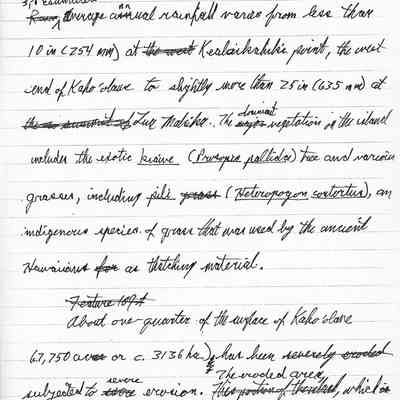 average annual rainfall varies from less than
10 in (254 mm) at the west Kealaikahiki point, the west
end of Kaho'olawe to slightly more than 25 in (635 mm) at
the summit of Lua Makika. The dominant vegetation on the island
includes the exotic kiawe (Prosopis pallida) tree and various
grasses, including pili grass (Heteropogon contortus), an
indigenous species of grass that was used by the ancient
Hawaiians for as thatching material.
Feature 109 #
About one-quarter of the surface of Kaho'olawe
(7,750 acres or c. 3136 ha) has been severely eroded
subjected to severe erosion. The eroded area, This portion of the island, which is